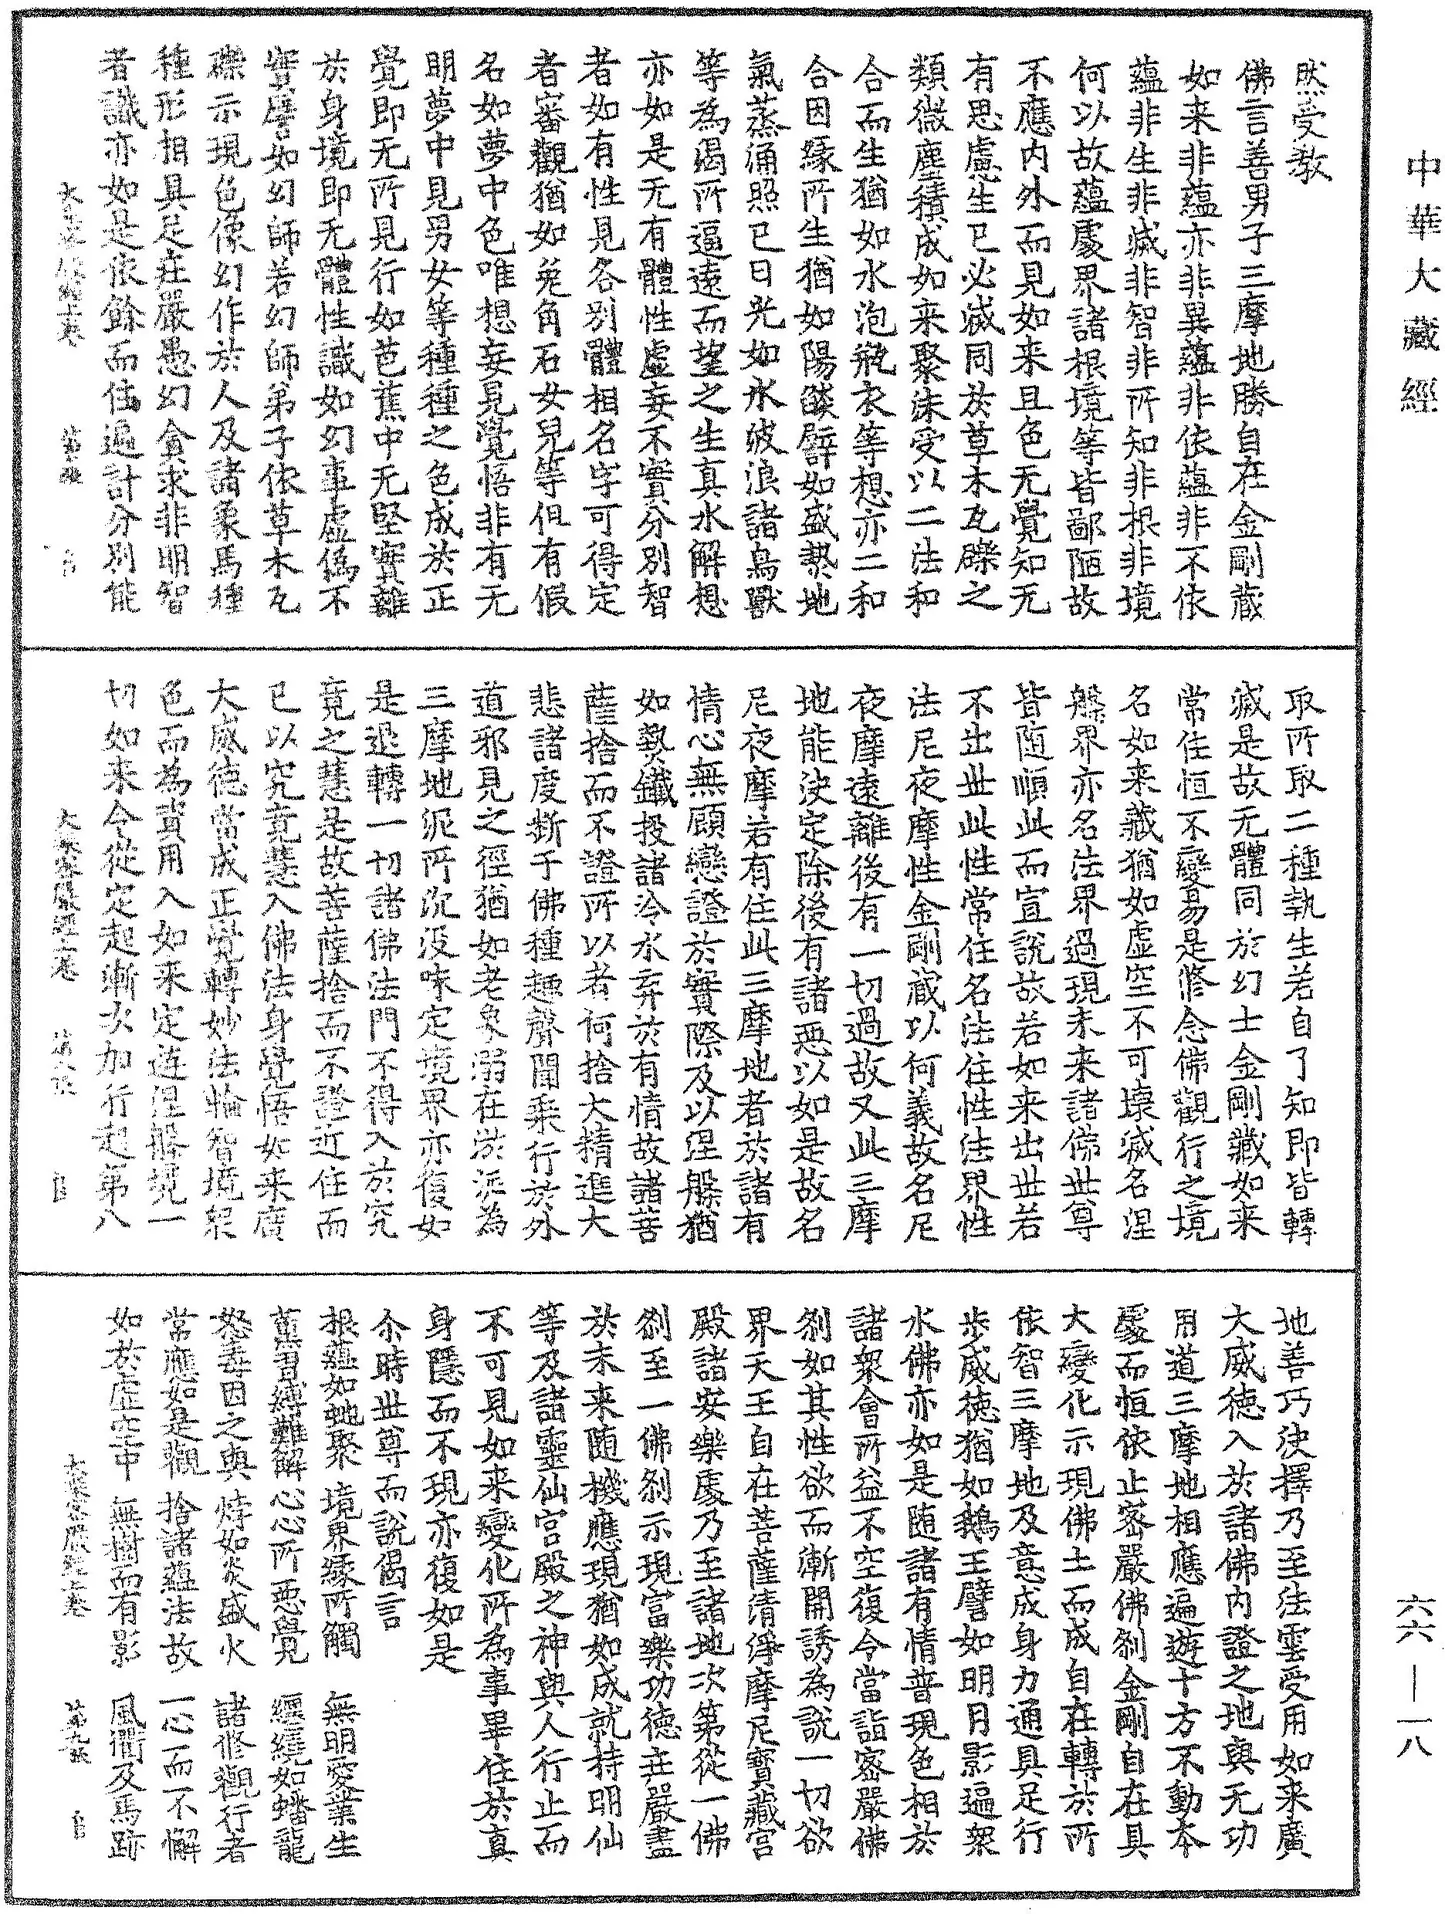 中華大藏經
然受教
佛言善男子三摩地勝自在金剛藏
如来非蘊亦非異蘊非依蘊非不依
蘊非生非滅非智非所知非根非境
何以故蘊處界諸根境等皆鄙陋故
不應内外而見如来且色无覺知无
有思慮生已必滅同於草木瓦礫之
類微塵積成如来聚沫受以二法和
合而生猶如水泡瓶衣等想亦二和
合因緣所生猶如陽燄譬如盛熱地
氣蒸涌照已日光如水波浪諸鳥獸
等為渴所逼遠而望之生真水解想
亦如是无有體性虚妄不實分別智
者如有性見各別體相名字可得定
者審觀猶如兔角石女兒等但有假
名如夢中色唯想妄見覺悟非有无
明夢中見男女等種種之色成於正
覺即无所見行如芭蕉中无堅實離
於身境即无體性識如幻事虚僞不
實譬如幻師若幻師弟子依草木瓦
礫示現色像幻作於人及諸象馬種
種形相具足莊嚴愚幻貪求非明智
者識亦如是依餘而住遍計分別能
取所取二種執生若自了知即皆轉
滅是故无體同於幻士金剛藏如来
常住恒不變易是修念佛觀行之境
名如来藏猶如虚空不可壞滅名涅
槃界亦名法界過現未来諸佛世尊
皆随順此而宣說故若如来出世若
不出世此性常住名法住性法界性
法尼夜摩性金剛藏以何義故名尼
夜摩遠離後有一切過故又此三摩
地能決定除後有諸惡以如是故名
尼夜摩若有住此三摩地者於諸有
情心無顧戀證於實際及以涅槃猶
如熱鐵投諸冷水弃於有情故諸菩
薩捨而不證所以者何捨大精進大
悲諸度斷于佛種趣聲聞乘行於外
道邪見之徑猶如老象溺在淤泥為
三摩地泥所沉沒味定境界亦復如
是退轉一切諸佛法門不得入於究
竟之慧是故菩薩捨而不證近住而
已以究竟慧入佛法身覺悟如来廣
大威德當成正覺轉妙法輪智境衆
色而為資用入如来定遊涅槃境一
切如来令從定起漸次加行超第八
大乘密嚴經上卷　第八張　自
地善巧決擇乃至法雲受用如来廣
大威德入於諸佛内證之地與无功
用道三摩地相應遍遊十方不動本
處而恒依止密嚴佛剎金剛自在具
大變化示現佛土而成自在轉於所
依智三摩地及意成身力通具足行
步威德猶如鵝王譬如明月影遍衆
水佛亦如是随諸有情普現色相於
諸衆會所益不空復令當詣密嚴佛
剎如其性欲而漸開誘為說一切欲
界天王自在菩薩清淨摩尼寶藏宮
殿諸安樂處乃至諸地次第從一佛
剎至一佛剎示現富樂功德莊嚴盡
於未来随機應現猶如成就持明仙
等及諸靈仙宮殿之神與人行止而
不可見如来變化所為事畢住於真
身隱而不現亦復如是
尒時世尊而說偈言
根蘊如虵聚　境界緣所觸　無明愛業生
薰習縛難解　心心所惡覺　纒繞如蟠龍
怒毒因之興　㶿如炎盛火　諸修觀行者
常應如是觀　捨諸蘊法故　一心而不懈
如於虛空中　無樹而有影　風衢及馬跡
大乘密嚴經上卷　第九張　自
六六—一八